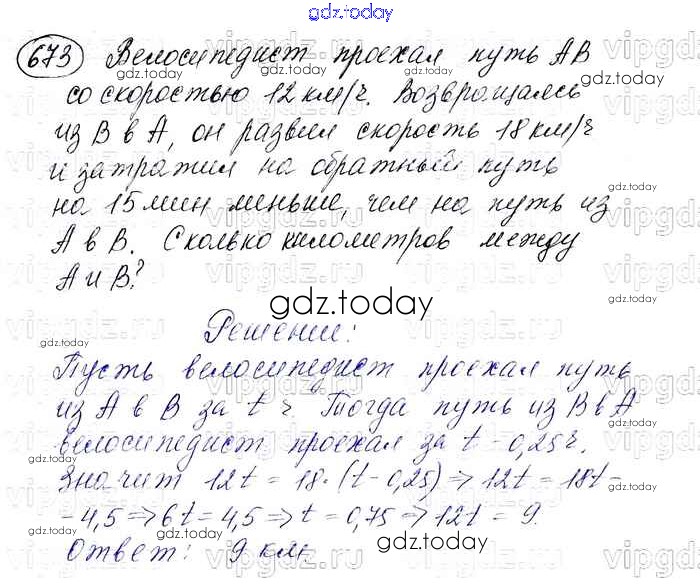 gdz.today
673 Велосипедист проехал путь АВ
со скоростью 12 км/ч. Возвращаясь
из В в А, он развил скорость 18 км/ч
и затратил на обратный путь
на 15 мин меньше, чем на путь из
А в В. Сколько километров между
А и В?
gdz.today
Решение:
Пусть велосипедист проехал путь
из А в В за t ч. Тогда путь из В в А
велосипедист проехал за t - 0,25 ч.
Значит 12t = 18·(t-0,25) => 12t = 18t -
- 4,5 => 6t = 4,5 => t = 0,75 => 12t = 9.
Ответ: 9 км.